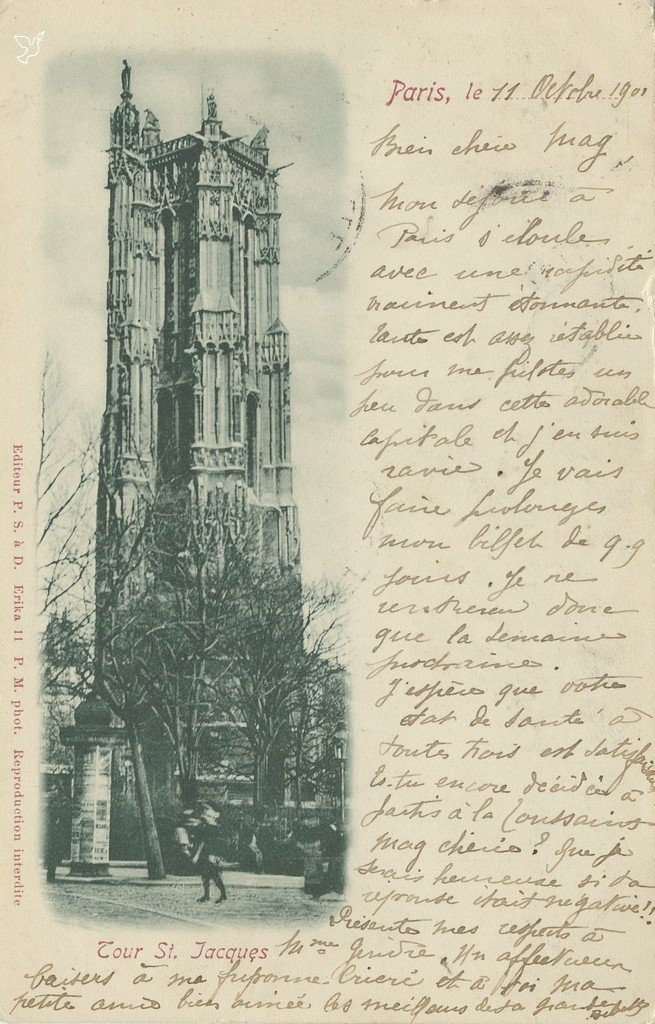 Paris, le 11 Octobre 190
Bien chère Mag,
Mon séjour à
Paris s'écoule
avec une rapidité
vraiment étonnante.
Tante est assez rétablie
pour me piloter un
peu dans cette adorable
capitale et j'en suis
ravie. Je vais
faire prolonger
mon billet de q.q
jours. Je ne
rentrerai donc
que la semaine
prochaine.
J'espère que votre
état de santé à
toutes trois est
Es-tu encore décidée à
partir à la Toussaint
Mag chérie? Que je
serais heureuse si ta
réponse était négative!!
Présente mes respects à
Mme Un affectueux
baisers à ma friponne et à toi ma
petite amie bien aimée les meilleurs de ta grande
Tour St. Jacques
Editeur P. S. à D. Erika 11 P. M. phot. Reproduction interdite